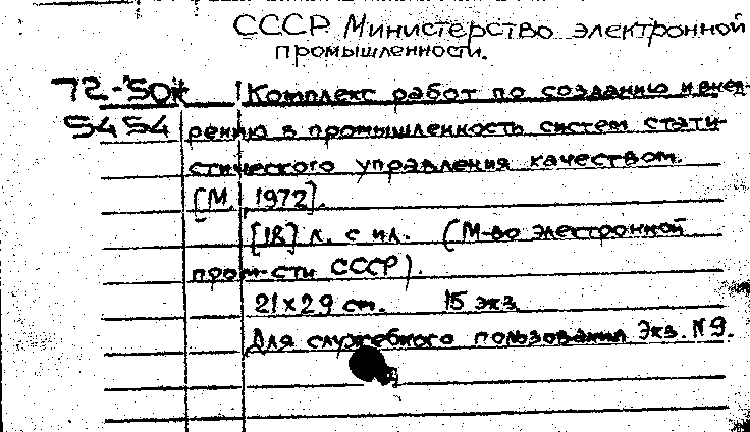 СССР Министерство электронной
промышленности.
72-50*
5454
Комплекс работ по созданию и внед-
рению в промышленность систем стати-
стического управления качеством.
[М., 1972].
[18] л. с ил. (М-во электронной
пром-сти СССР).
21×29 см. 15 экз.
Для служебного пользования Экз. №9.